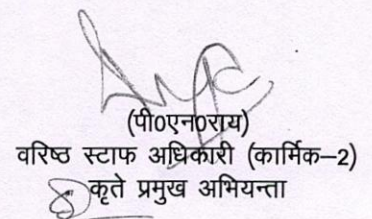 (पी0एन0राय)
वरिष्ठ स्टाफ अधिकारी (कार्मिक–2)
कृते प्रमुख अभियन्ता